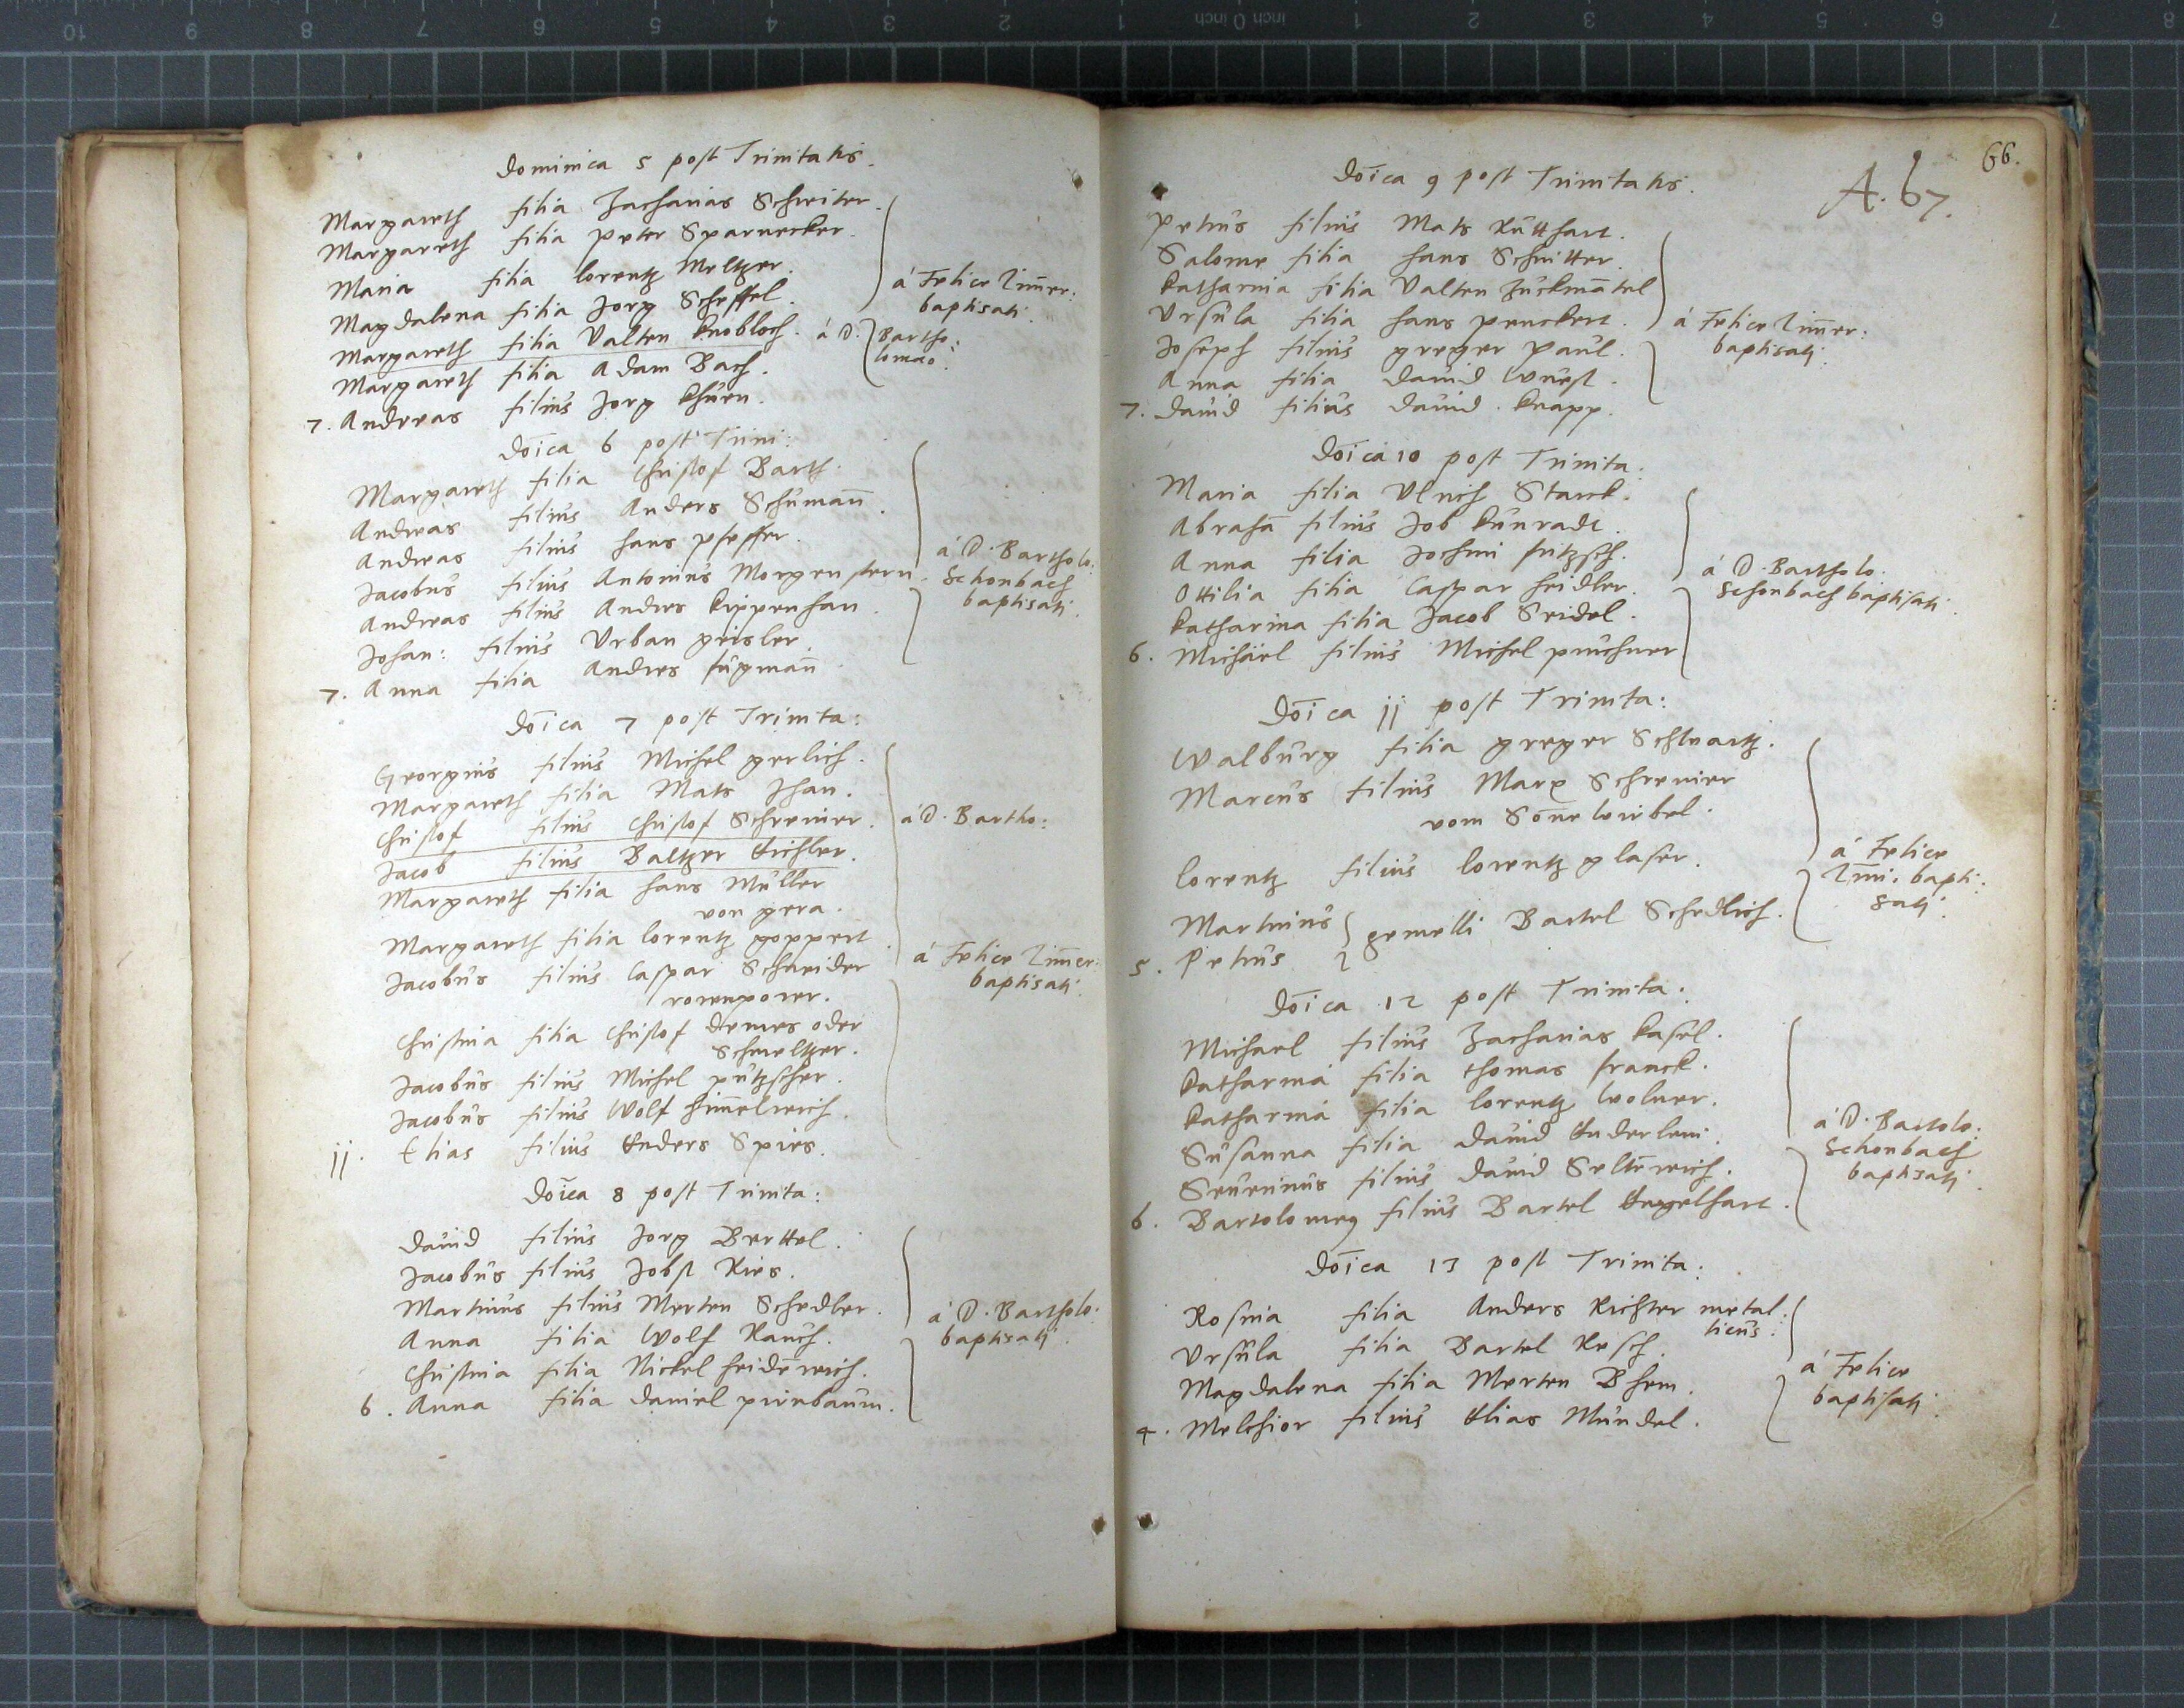 Dominica 5 post Trinitatis.
Margareth filia Zacharias Schreiter.
Margareth filia Peter Sparnecker.
Maria filia lorentz Meltzer.
Magdalena filia Jorg Scheffel.
á Felice Zim̄er:
baptisati.
Margareth filia Valten knobloch. á D. Bartho:
lomæo.
Margareth filia Adam Bach.
7. Andreas filius Jorg khürn.
Dōica 6 post Trini:
Margareth filia Christof Barth.
Andreas filius Anders Schuman̄.
Andreas filius hans pfeffer.
Jacobus filius Antonius Morgenstern.
Andreas filius Andres kippenhan.
Johan: filius Urban geisler.
7. Anna filia Andres fugman̄
á D. Bartholo:
Schonbach
baptisati.
Dōica 7 post Trinita:
Georgius filius Michel gerlich.
Margareth filia Mats Jhan.
Christof filius Christof Schreiner.
á D. Bartho:
Jacob filius Baltzer Eichler.
Margareth filia hans Müller
von gera.
Margareth filia lorentz goppert.
á Felice Zim̄er:
baptisati.
Jacobus filius Caspar Schneider
Christina filia Christof demes oder
Schmeltzer.
Jacobus filius Michel putzscher.
Jacobus filius Wolf him̄elreich.
11. Elias filius Enders Spies.
Dōica 8 post Trinita:
David filius Jorg Berttel.
Jacobus filius Jobst Ries.
Martinus filius Merten Schedler.
Anna filia Wolf Rauch.
Christina filia Nickel heidēreich.
6. Anna filia Daniel pirnbaum.
á D. Bartholo:
baptisati.
66.
A. 67.
Dōica 9 post Trinitatis.
Petrus filius Mats Rütthart.
Salome filia hans Schnitter.
katharina filia Valten Zuckmātel
Ursula filia hans penckert.
Joseph filius greger Paul.
Anna filia David Wuest.
7. David filius David knapp.
á Felice Zim̄er:
baptisati.
Dōica 10 post Trinita:
Maria filia Ulrich Starck.
Abrahā filius Job kunradt.
Anna filia Jochim fritzsch.
Ottilia filia Caspar heidler.
katharina filia Jacob Seidel.
6. Michäel filius Michel puschner
á D. Bartholo:
Schonbach baptisati.
Dōica 11 post Trinita:
Walburg filia greger Schwartz.
Marcus filius Marx Schreiner
vom Sōnewirbel.
lorentz filius lorentz glaser.
Martinus
5. Petrus
gemelli Bartel Schedlich.
á Felice
Zim̄. bapti:
sati.
Dōica 12 post Trinita:
Michael filius Zacharias kasel.
katharina filia thomas franck.
katharina filia lorentz Wolner.
Susanna filia David Enderlein.
Severinus filius David Seltēreich.
6. Bartolomeus filius Bartel Engelhart.
á D. Bartolo:
Schonbach
baptisati.
Dōica 13 post Trinita:
Rosina filia Anders Richter metal:
licus.
Ursula filia Bartel Resch.
Magdalena filia Merten Bhem.
4. Melchior filius Elias Mundel.
á Felice
baptisati.